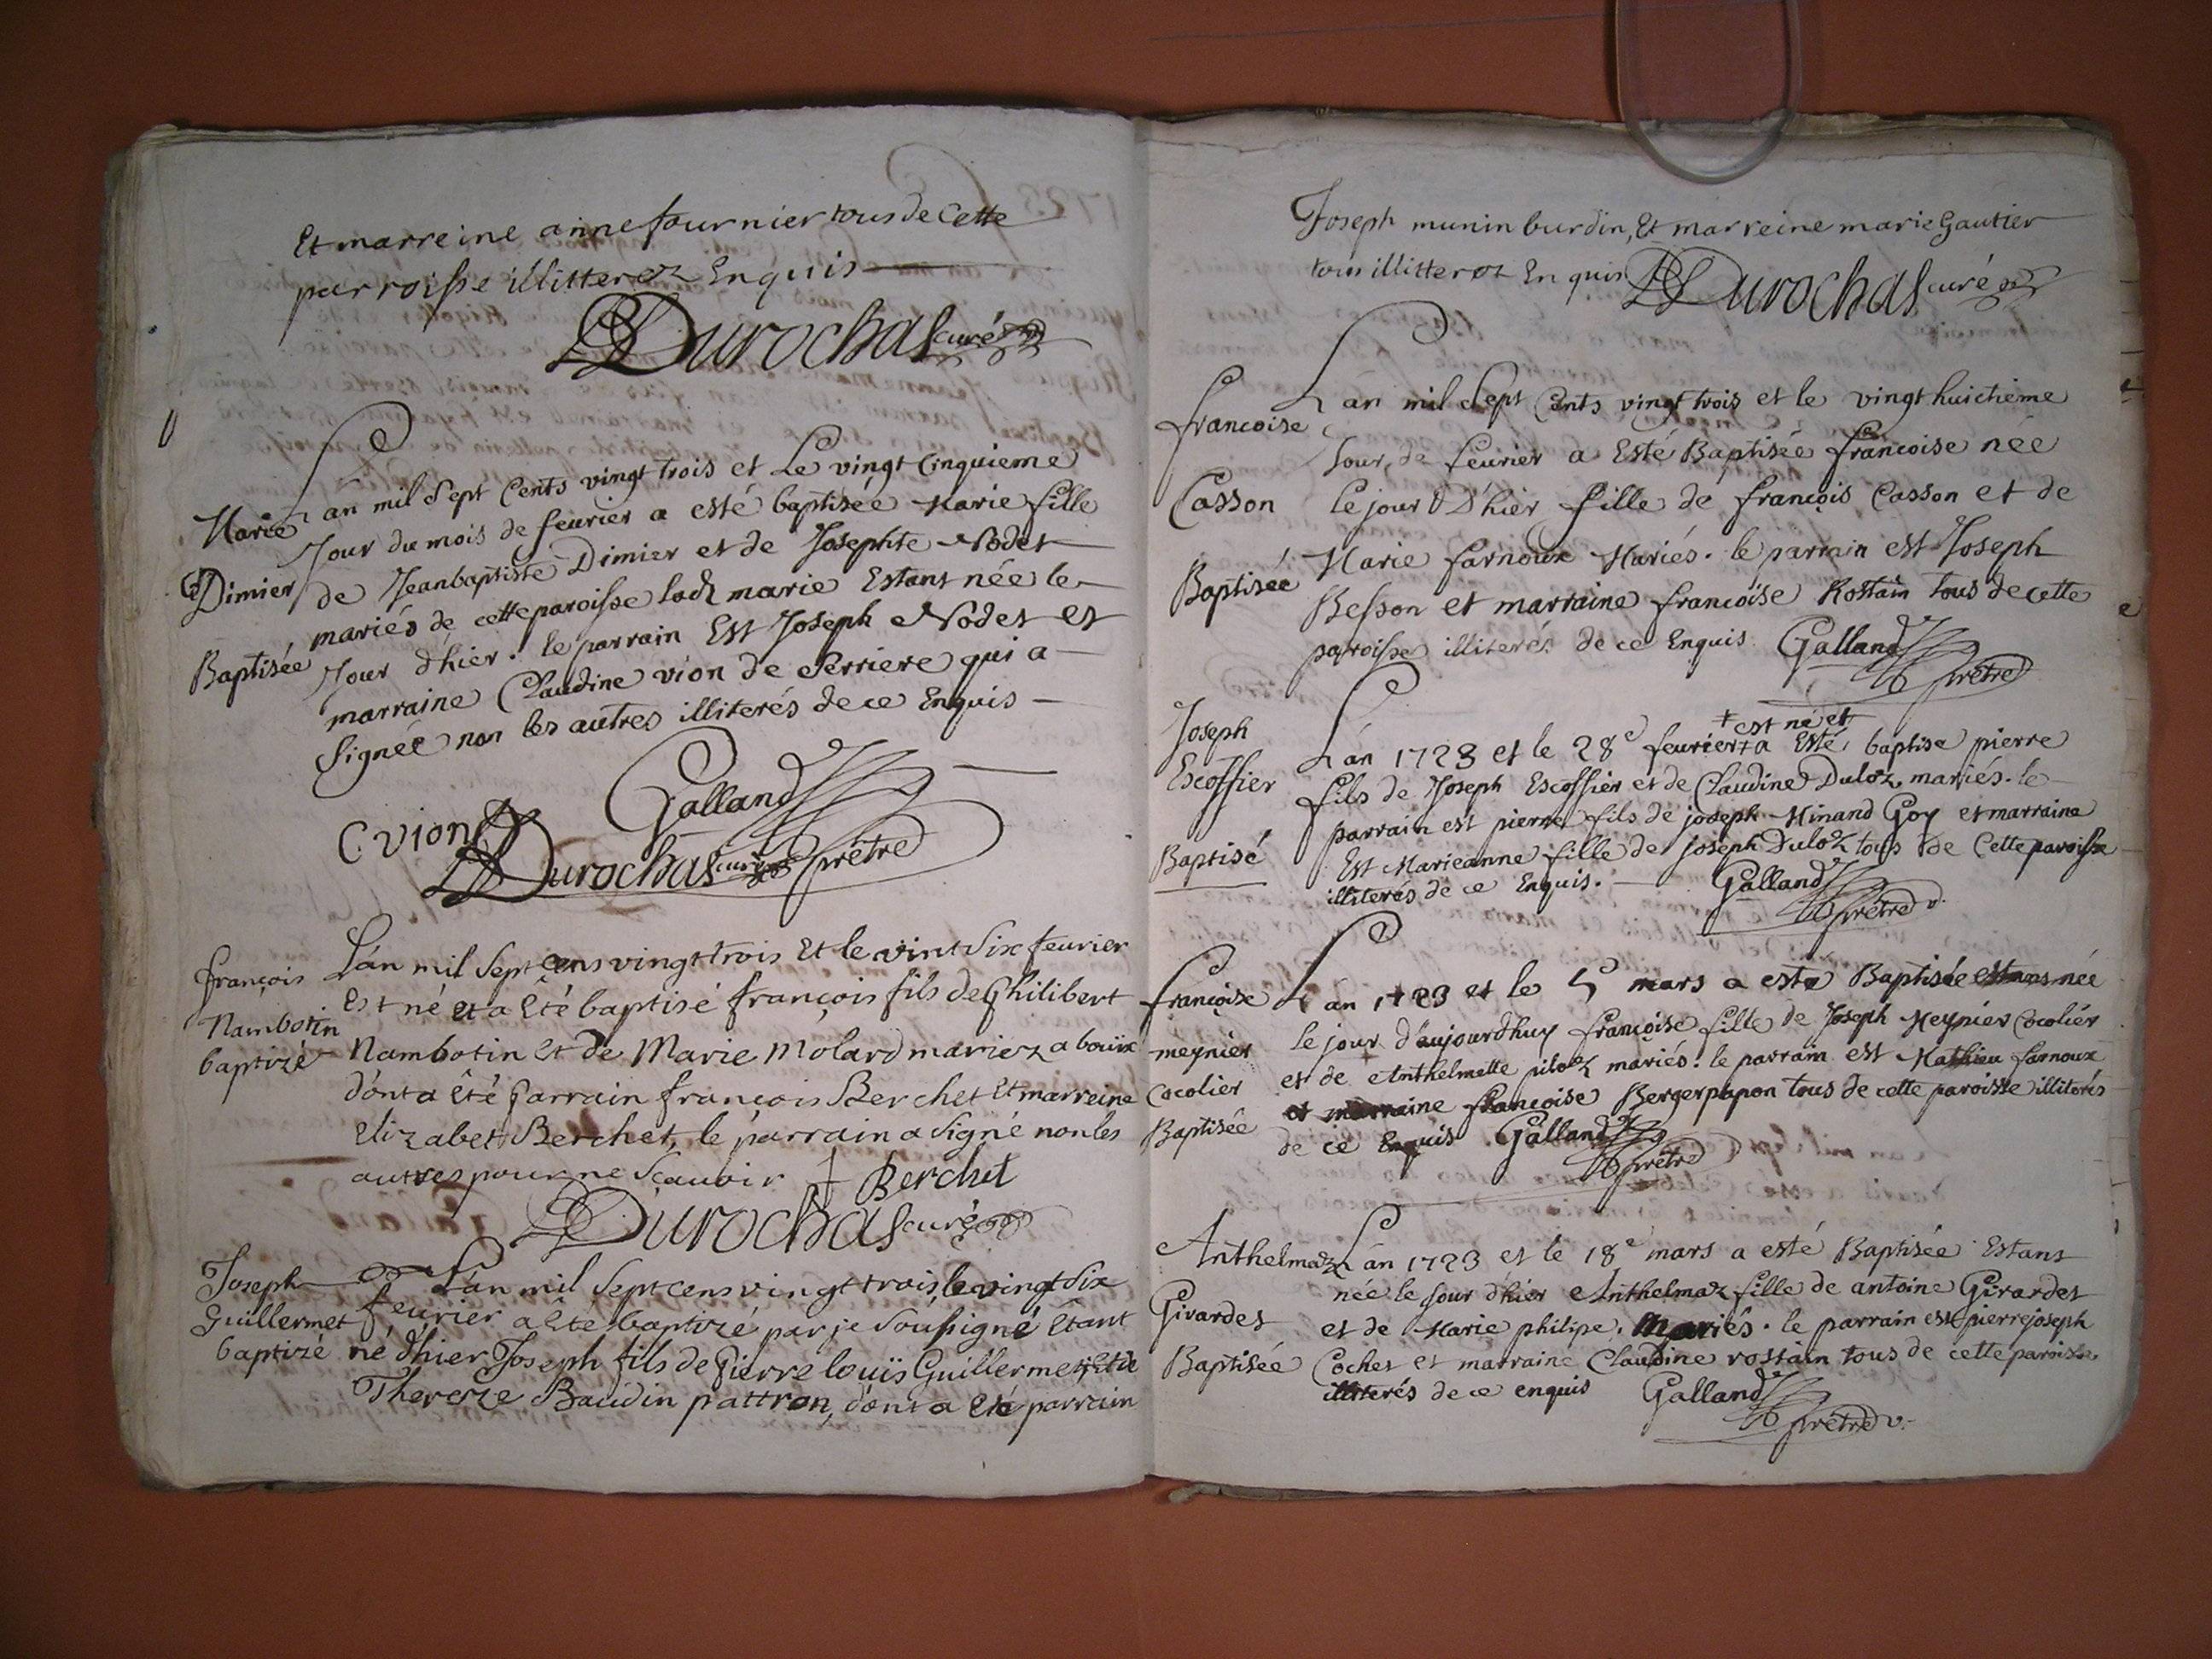 Et marreine anne fournier tous de Cette
parroisse illitterez Enquis
Durochas curé
Marie
Dimier
Baptisée
Lan mil Sept Cents vingt trois et Le vingt Cinquieme
Jour du mois de feurier a esté baptisée Marie fille
de Jeanbaptiste Dimier et de Josephte Nodet
mariés de cette paroisse lad marie Estant née le
Jour d'hier. le parrain Est Joseph Nodet et
marraine Claudine vion de Serriere qui a
Signée non les autres illiterés de ce Enquis
Galland
prêtre
C vion
Durochas curé
françois
Nambotin
baptizé
L'an mil Sept cens vingt trois Et le vint Six feurier
Est né et a Eté baptisé françois fils de Philibert
Nambotin et de Marie Molard mariez a bouix
dont a été Parrain françois Berchet et marreine
Elizabet Berchet, le parrain a Signé non les
autres pour ne Sçauoir Berchet
Durochas curé
Joseph
Guillermet
baptizé
L'an mil Sept cens vingt trois, le vingt Six
feurier a Eté baptizé par je Soussigné Etant
né d'hier Joseph fils de Pierre louïs Guillermet et de
Thereze Baudin pattron, dont a Eté parrain
Joseph munin burdin, Et marreine marie Gautier
tous illitterez Enquis Durochas curé
francoise
Casson
Baptisée
Lan mil Sept Cents vingt trois et le vingt huictieme
Jour de feurier a Esté Baptisée francoise née
le jour D'hier fille de françois Casson et de
Marie farnoux Mariés. le parrain est Joseph
Besson et marraine francoise Rostain tous de cette
paroisse illiterés de ce Enquis. Galland
prêtre
Joseph
Escoffier
Baptisé
+ est né et
Lan 1723 et le 28e feurier + a Esté baptise pierre
fils de Joseph Escoffier et de Claudine Duloz mariés. le
parrain est pierre fils de joseph Minand Goy et marraine
Est Marieanne fille de Joseph Duloz tous de Cette paroisse
illiterés de ce Enquis. Galland
prêtre v.
françoise
meynier
Cocolier
Baptisée
Lan 1723 et le 5e mars a este Baptisée estans née
le jour d'aujourdhuy françoise fille de Joseph Meynier Cocolier
et de Anthelmette piloz mariés. le parrain est Mathieu farnoux
et marraine françoise Berger papon tous de cette paroisse illiterés
de ce Enquis Galland
prêtre
Anthelmaz
Girardet
Baptisée
Lan 1723 et le 18e mars a esté Baptisée Estans
née le Jour d'hier Anthelmaz fille de antoine Girardet
et de Marie philipe. Mariés. le parrain est pierre joseph
Cochet et marraine Claudine rostain tous de cette paroisse
illiterés de ce enquis Galland
prêtre v.